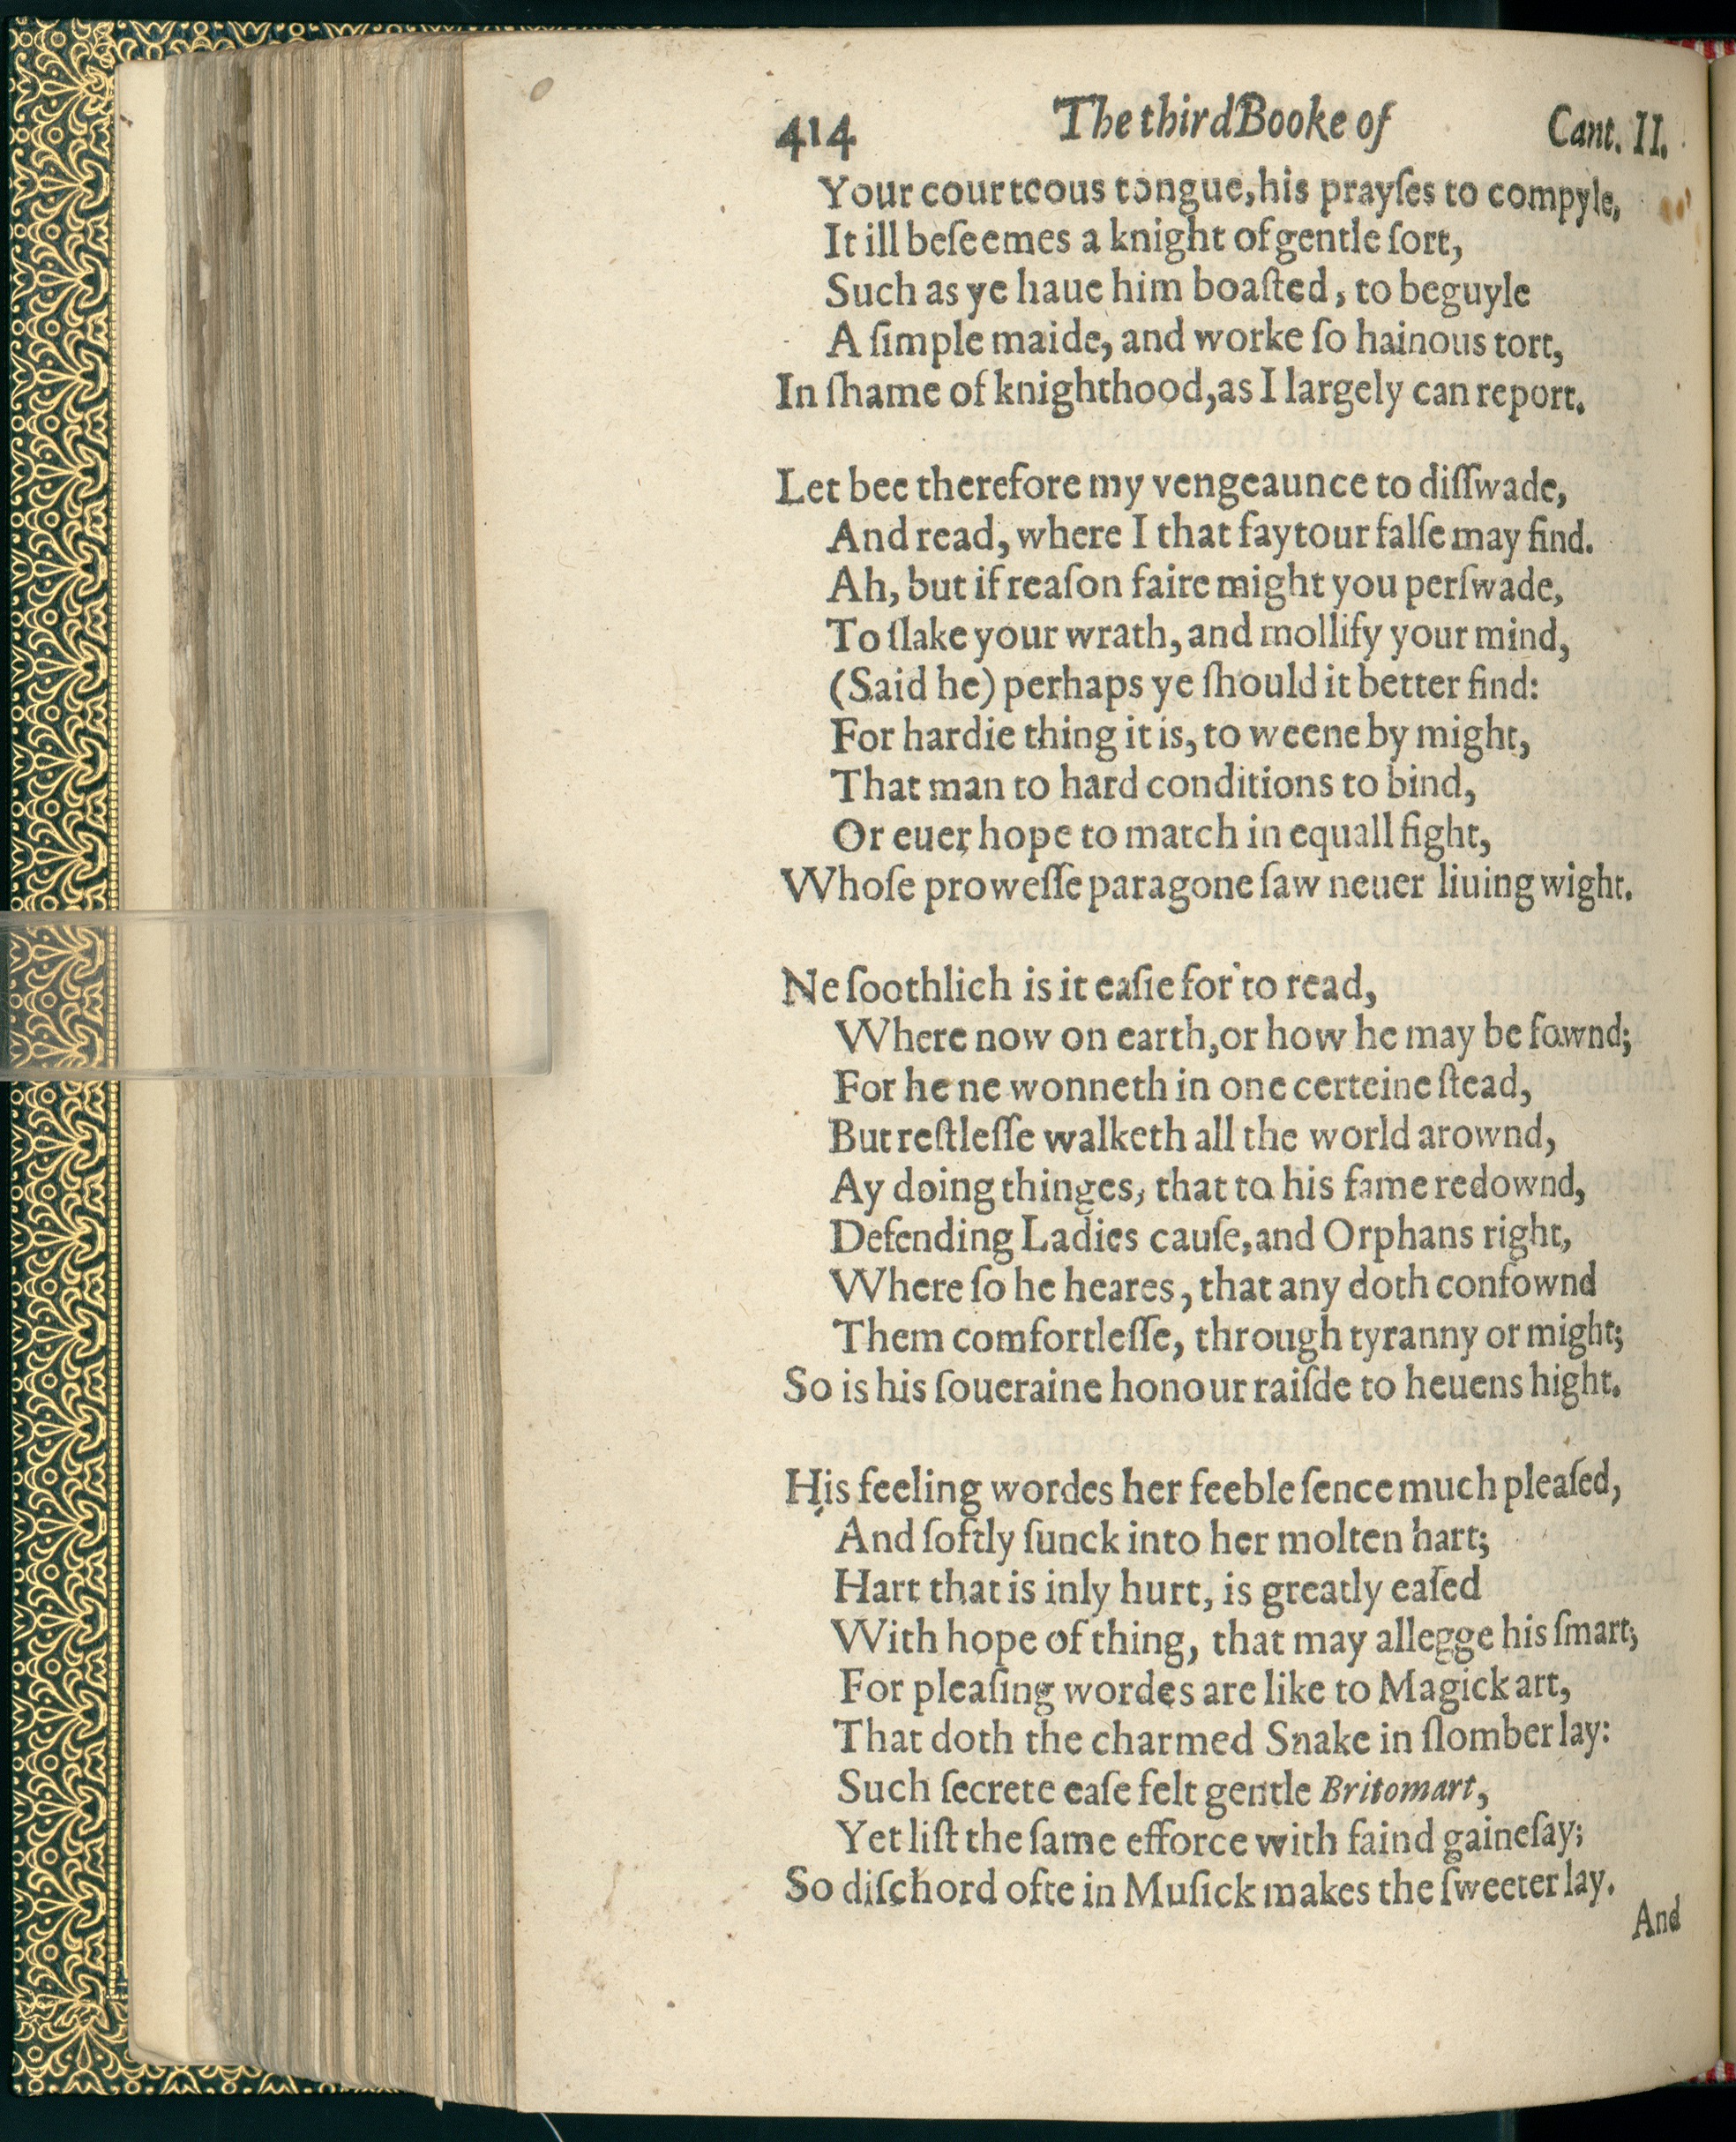 414 The third Booke of Cant. II.
Your courteous tongue, his prayſes to compyle,
It ill beſeemes a knight of gentle ſort,
Such as ye haue him boaſted, to beguyle
A ſimple maide, and worke ſo hainous tort,
In ſhame of knighthood, as I largely can report.
Let bee therefore my vengeaunce to diſſwade,
And read, where I that faytour falſe may find.
Ah, but if reaſon faire might you perſwade,
To ſlake your wrath, and mollify your mind,
(Said he) perhaps ye ſhould it better find:
For hardie thing it is, to weene by might,
That man to hard conditions to bind,
Or euer hope to match in equall fight,
Whoſe proweſſe paragone ſaw neuer liuing wight.
Ne ſoothlich is it eaſie for to read,
Where now on earth, or how he may be fownd;
For he ne wonneth in one certeine ſtead,
But reſtleſſe walketh all the world arownd,
Ay doing thinges, that to his fame redownd,
Defending Ladies cauſe, and Orphans right,
Where ſo he heares, that any doth confownd
Them comfortleſſe, through tyranny or might;
So is his ſoueraine honour raiſde to heuens hight.
His feeling wordes her feeble ſence much pleaſed,
And ſoftly ſunck into her molten hart;
Hart that is inly hurt, is greatly eaſed
With hope of thing, that may allegge his ſmart;
For pleaſing wordes are like to Magick art,
That doth the charmed Snake in ſlomber lay:
Such ſecrete eaſe felt gentle Britomart,
Yet liſt the ſame efforce with faind gaineſay;
So diſchord ofte in Muſick makes the ſweeter lay.
And